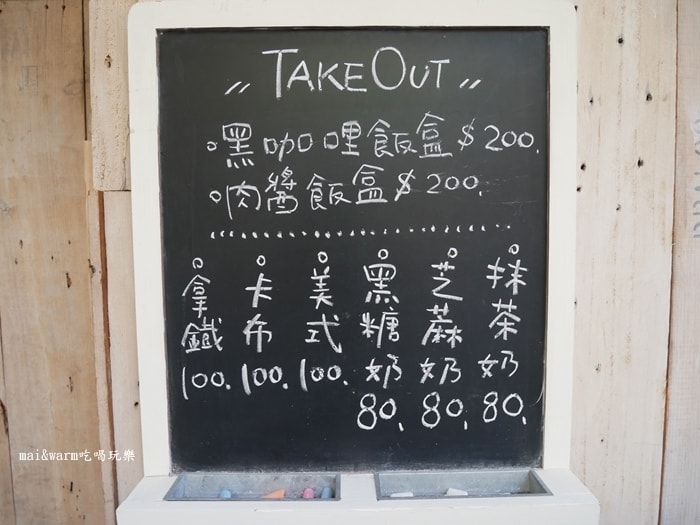 "TAKE OUT"
黑咖哩飯盒 $200.
肉醬飯盒 $200.
抹茶奶 80.
芝蔴奶 80.
黑糖奶 80.
美式 100.
卡布 100.
拿鐵 100.
mai&warm吃喝玩樂